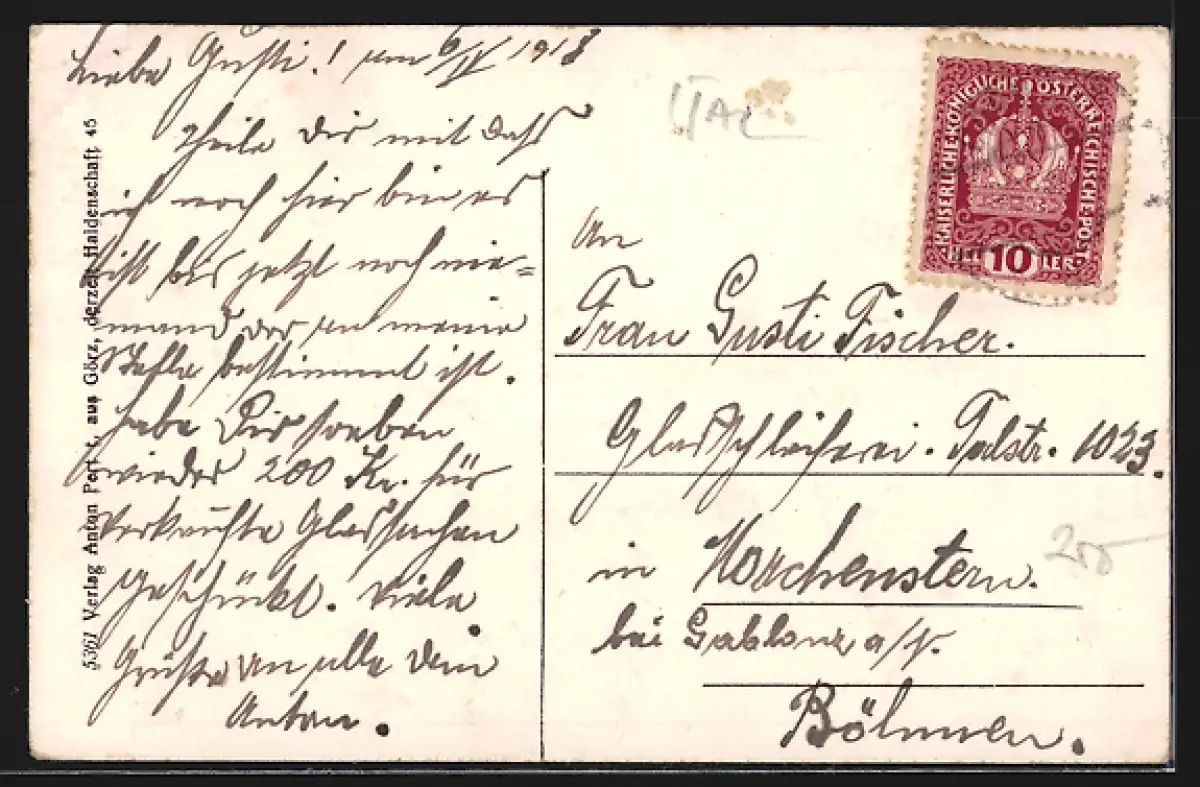 Liebe Gusti! am 6/IV 1918
Theile Dir mit dass
ich noch hier bin es
ist bis jetzt noch nie=
mand der an meine
Stelle bestimmt ist.
habe Dir soeben
wieder 200 Kr. für
verkaufte Glassachen
geschückt. Viele
Grüße an alle Dein
Anton.
5361 Verlag Anton aus Görz, derzeit Haidenschaft 45
ITAL
KAISERLICHE KÖNIGLICHE ÖSTERREICHISCHE POST
10
HELLER
An
Frau Gusti Fischer.
Glasschleiferei. Talstr. 1023.
in Morchenstern.
200
bei Gablonz a/N.
Böhmen.